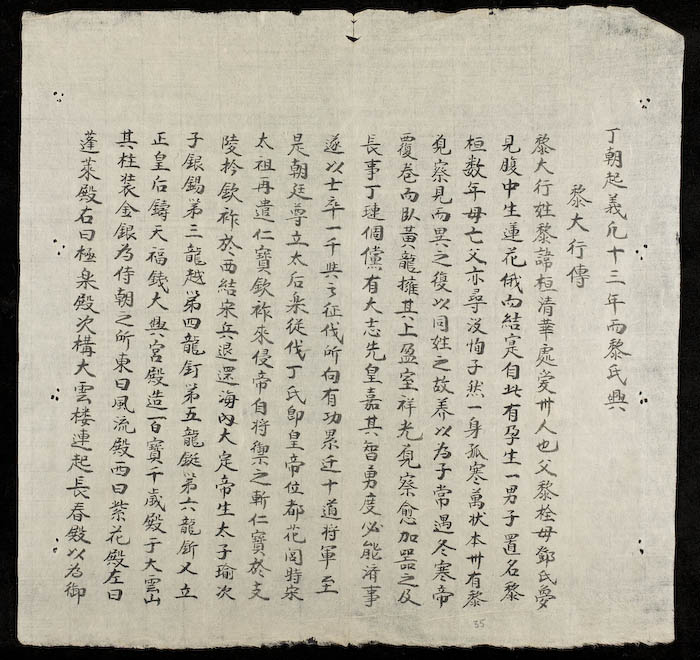 丁朝起義凢十三年而黎氏興
黎大行傳
黎大行姓黎諱桓清華處愛州人也父黎栓母鄧氏夢
見腹中生蓮花俄而結寔自此有孕生一男子置名黎
桓数年母亡父亦尋没恂孑然一身孤寒萬状本州有黎
覌察見而異之復以同姓之故养以為子常遇冬寒帝
覆卷而卧黃龍擁其上盈室祥光覌察愈加器之及
長事丁璉倜儻有大志先皇嘉其智勇度必能済事
遂以士卒一千與之征伐所向有功累迁十道将軍至
是朝廷尊立太后楽従伐丁氏即皇帝位都花閭時宋
太祖再遣仁寶欽祚來侵帝自将禦之斬仁寶於支
陵扲欽祚於西結宋兵退還海内大定帝生太子瑜次
子銀錫第三龍越第四龍釘第五龍鋌第六龍釿又立
正皇后鑄天福錢大興宮殿造百寶千歲殿于大雲山
其柱裝金銀為侍朝之所東曰風流殿西曰紫花殿左曰
蓬莱殿右曰極楽殿次構大雲楼連起長春殿以為御
35